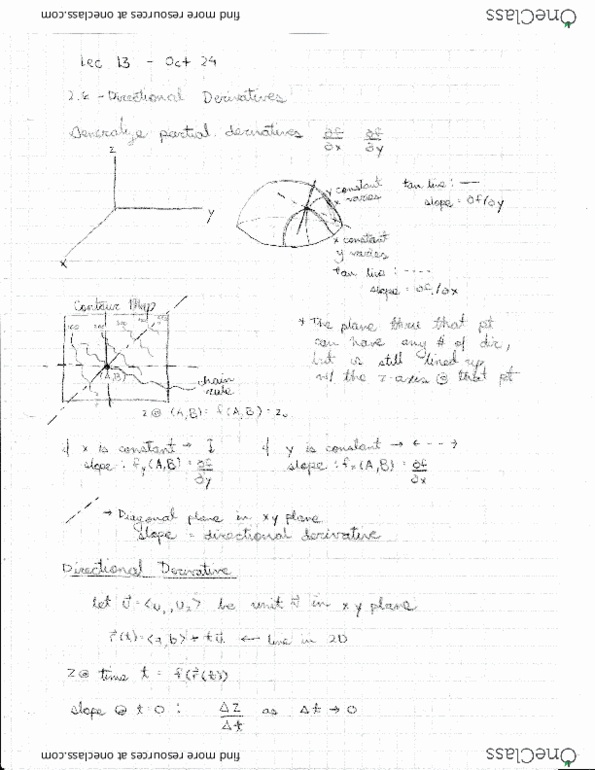 find more resources at oneclass.com
OneClass
Lec 13 - Oct 24
2.6 - Directional Derivatives
Generalize partial derivatives ∂f/∂x ∂f/∂y
z
y
x
y constant
x varies
tan line : —
slope = ∂f/∂y
x constant
y varies
tan line : ----
slope = ∂f/∂x
Contour Map
(A,B)
chain rule
z @ (A,B) = f(A,B) = z₀
* The plane thru that pt
can have any # of dir,
but is still lined up
w/ the z-axis @ that pt
if x is constant → ↕
slope : fy(A,B) = ∂f/∂y
if y is constant → ← - - →
slope : fx(A,B) = ∂f/∂x
→ Diagonal plane in xy plane
slope = directional derivative
Directional Derivative
let u⃗ = <u₁, u₂> be unit v⃗ in xy plane
r⃗(t) = <a,b> + tu⃗ ← line in 2D
z @ time t = f(r⃗(t))
slope @ t=0 : Δz/Δt as Δt → 0
find more resources at oneclass.com
OneClass